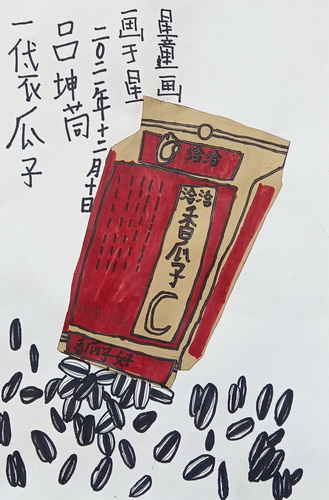 星童画
画于星
二〇二一年十二月十日
口口坤茼
一代衣瓜子
洽洽
洽洽
香瓜子
香瓜子好